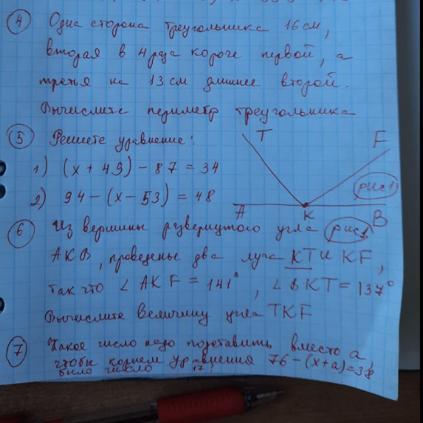 ④ Одна сторона треугольника 16 см,
вторая в 4 раза короче первой, а
третья на 13 см длиннее второй.
Вычислите периметр треугольника
⑤ Решите уравнение:
1) (x + 49) - 87 = 34
2) 94 - (x - 53) = 48
T
F
рис 1
A
K
B
⑥ Из вершины развернутого угла рис 1
AKB, проведены два луча KT и KF,
так что ∠ AKF = 141°, ∠ BKT = 137°
Вычислите величину угла TKF
⑦ Какое число надо подставить вместо а,
чтобы корнем уравнения 76 - (x + a) = 38
было число 17?